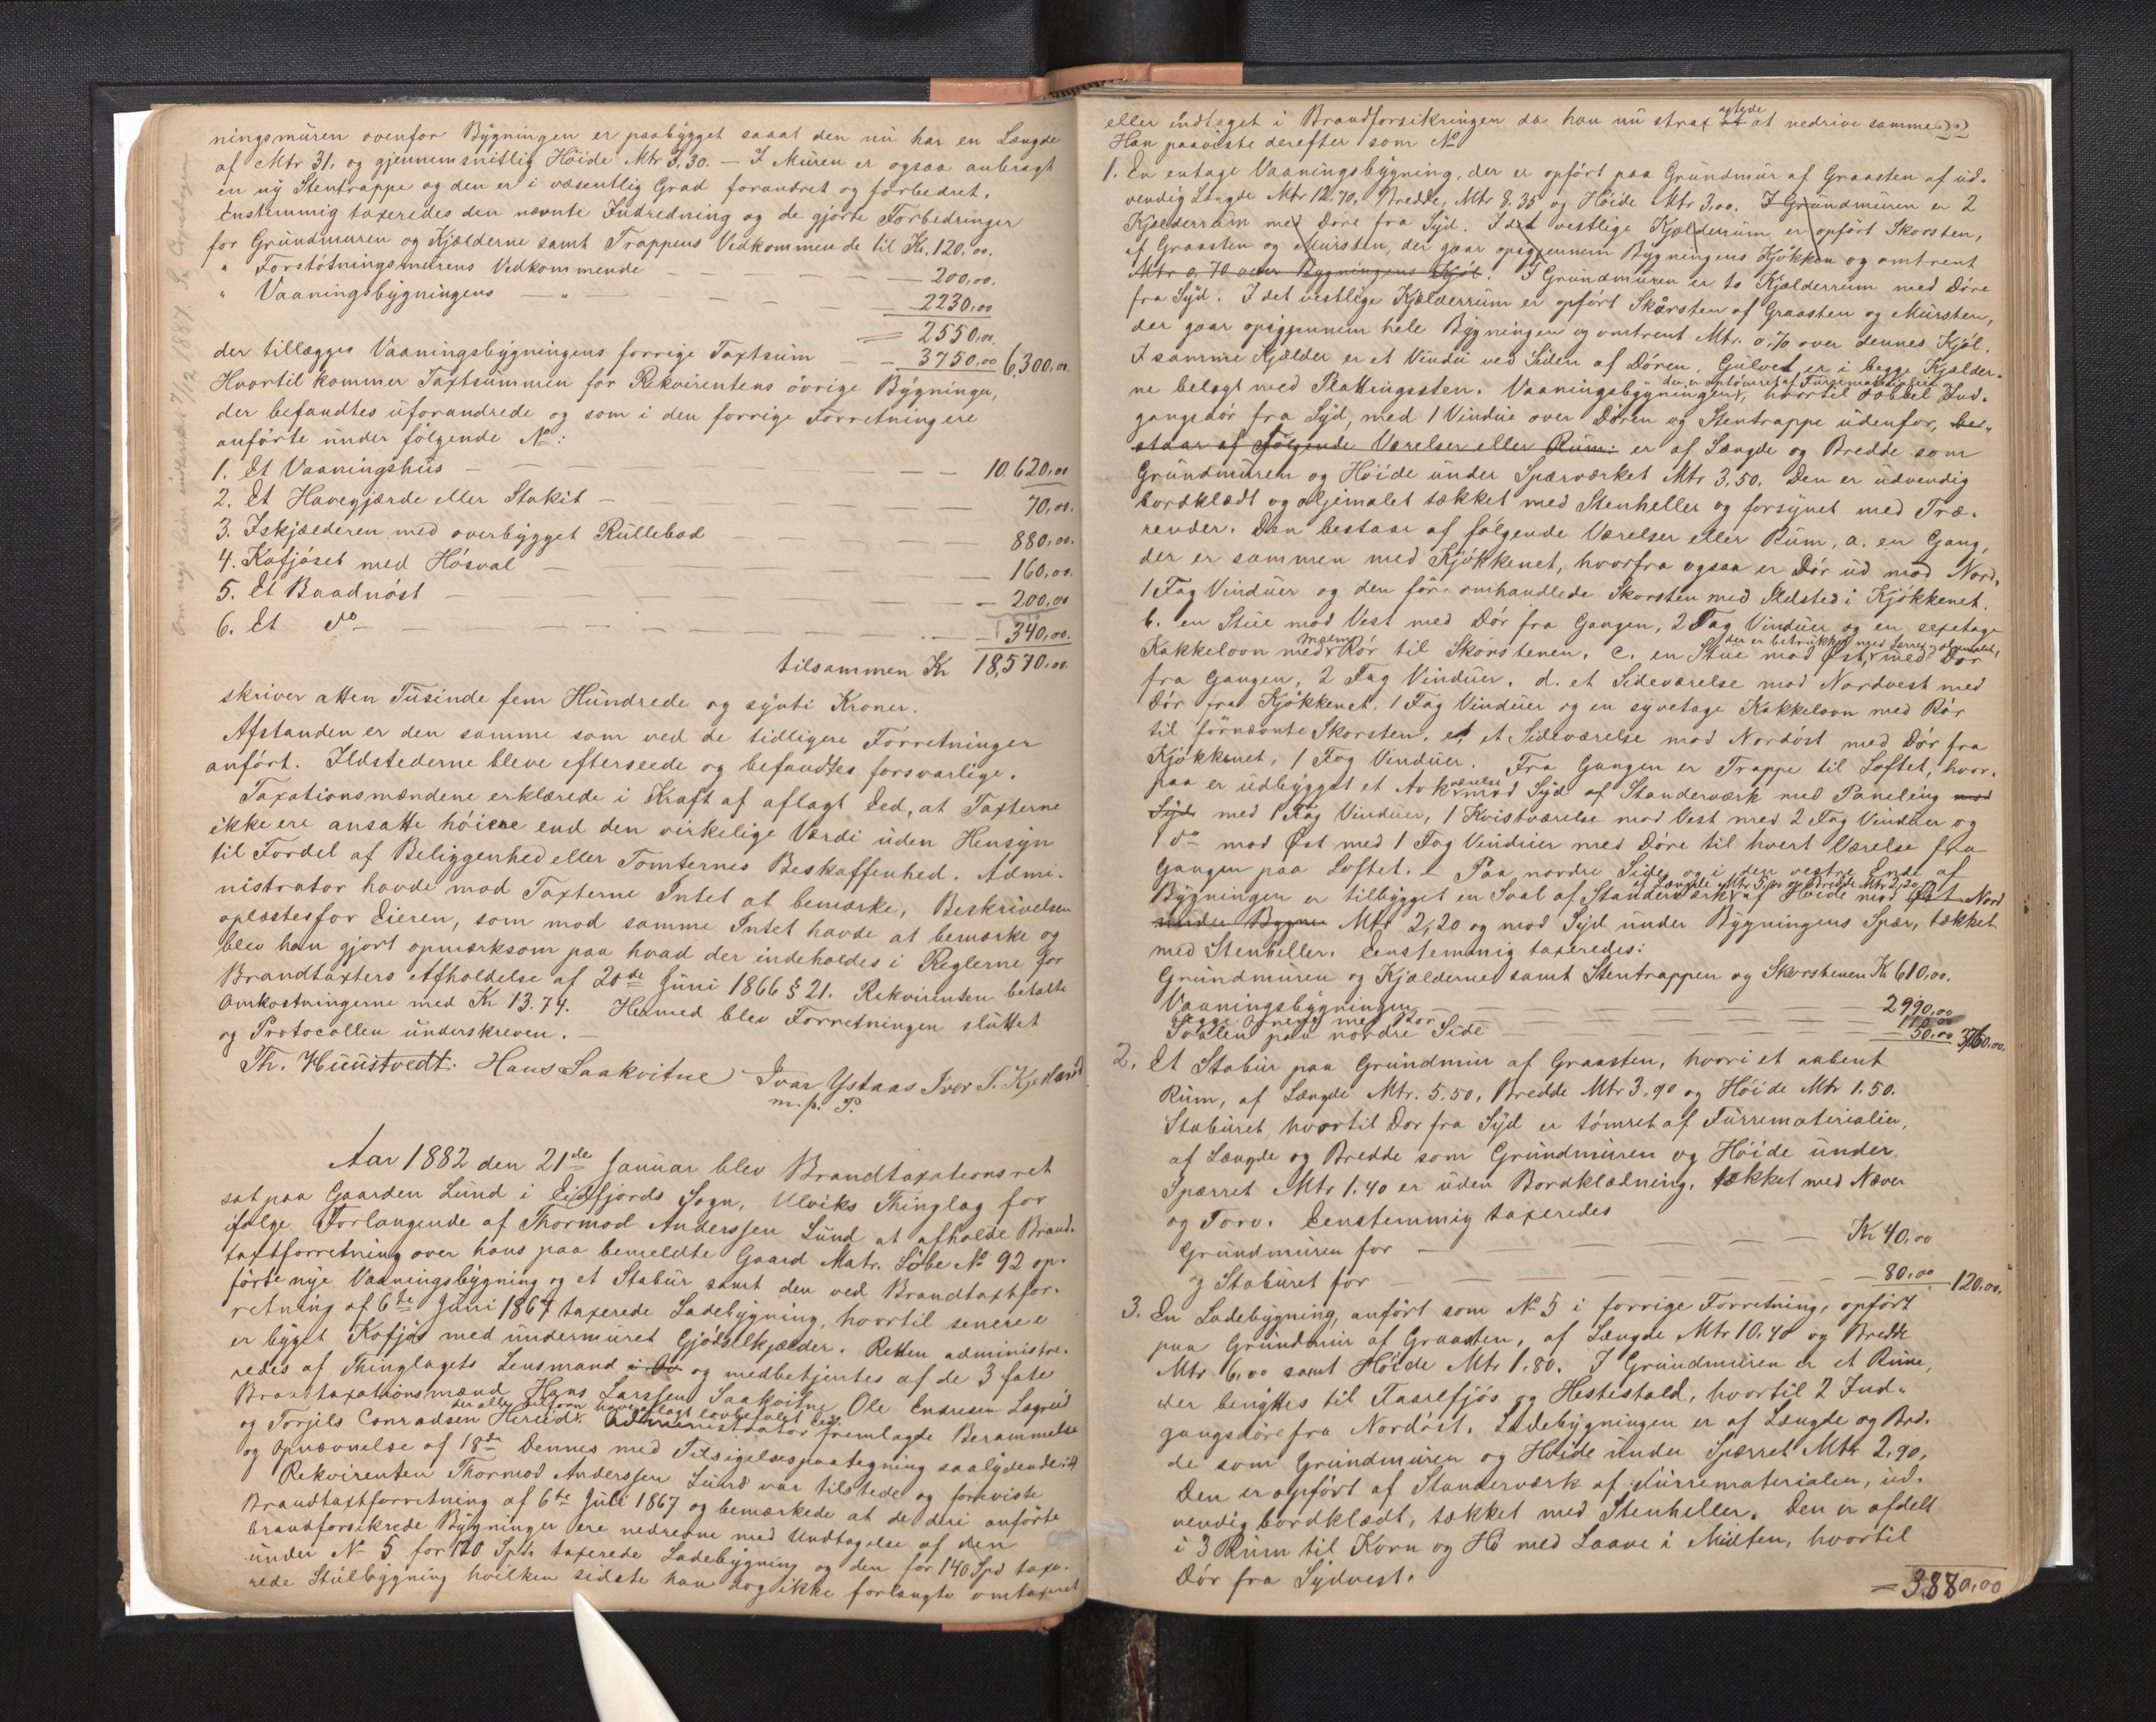 ningsmüren ovenfor Bÿgningen er paabÿgget saaat den nü har en Længde
af Mtr 31, og gjennemsnitlig Höide Mtr 3,30. — I Müren er ogsaa anbragt
en nÿ Stentrappe og den er i væsentlig Grad forandret og forbedret.
Enstemmig taxeredes den nævnte Indredning og de gjorte Forbedringer
for Grundmuren og Kjælderne samt Trappens Vedkommende til Kr. 120,00.
" Forstötningsmürens Vedkommende — 200,00.
" Vaaningsbÿgningens — " — 2230,00
= 2550,00.
der tillægges Vaaningsbÿgningens forrige Taxtsüm — 3750,00 6,300,00.
Hvortil kommer Taxtsümmen for Rekvirentens övrige Bÿgninger,
der befandtes üforandrede og som i den forrige Forretning ere
anförte ünder fölgende No:
1. Et Vaaningshüs — 10.620,00
2. Et Havegjærde eller Stakit — 70,00.
3. Iskjælderen med overbÿgget Rüllebod — 880,00.
4. Kofjöset med Hösval — 160,00.
5. Et Baadnöst — 200,00
6. Et do — 340,00.
tilsammen Kr 18,570,00.
skriver atten Tüsinde fem Hündrede og sÿtti Kroner.
Afstanden er den samme som ved de tidligere Forretninger
anfört. Ildstederne bleve efterseede og befandtes forsvarlige.
Taxationsmændene erklærede i Kraft af aflagt Eed, at Taxterne
ikke ere ansatte höiere end den virkelige Værdi uden Hensÿn
til Fordel af Beliggenhed eller Tomternes Beskaffenhed. Admi-
nistrator havde mod Taxterne Intet at bemærke, Beskrivelsen
oplæstes for Eieren, som mod samme Intet havde at bemærke og
blev han gjort opmærksom paa hvad der indeholdes i Reglerne for
Brandtaxters Afholdelse af 20de Jüni 1866 § 21. Rekvirenten betalte
Omkostningerne med Kr 13.74. Hermed blev Forretningen slüttet
og Protocollen ünderskreven. —
Th. Hüüstvedt. Hans Saakvitne Ivar Ystaas Iver S. Kjeland
m. p. P.
Aar 1882 den 21de Januar blev Brandtaxationsret
sat paa Gaarden Lünd i Eidfjords Sogn, Ulviks Thinglag for
ifölge Forlangende af Thormod Anderssen Lünd at afholde Brand-
taxtforretning over hans paa bemeldte Gaard Matr. Löbe No 92 op-
förte nÿe Vaaningsbÿgning og et Stabür samt den ved Brandtaxtfor-
retning af 6te Jüni 1867 taxerede Ladebÿgning, hvortil senere e
er bÿget Kofjös med ündermüret Gjödselkjælder. Retten administre-
redes af Thinglagets Lensmand og medbetjentes af de 3 faste
Brandtaxationsmænd Hans Larssen Saakvitne, Ole Endresen Lægreid
og Torjils Conradsen Hereid. der alle tilforn have aflagt lovbefalet Eed. Administrator fremlagde Berammelse
og Opnævnelse af 18de Dennes med Tilsigelsespaategning saalÿdende:
Rekvirenten Thormod Anderssen Lünd var tilstede og foreviste
Brandtaxtforretning af 6te Jüli 1867 og bemærkede at de deri anförte
brandforsikrede Bÿgninger ere nedrevne med Undtagelse af den
ünder No 5 for 120 Spd. taxerede Ladebÿgning og den for 140 Spd taxe-
rede Stüebÿgning hvilken sidste han dog ikke forlangte omtaxeret
Om nÿ Eed indtendt 7/12 1887.
eller indtaget i Brandforsikringen da han nü strax agtede at nedrive samme. 22
Han paaviste derefter som No
1. En entage Vaaningsbÿgning, der er opfört paa Grundmür af Graasten af üd-
vendig Længde Mtr 12,70, Bredde, Mtr 8.35 og Höide Mtr 3,00. I Gründmüren er 2
Kjælderrüm med Döre fra Sÿd. I det vestlige Kjælderrüm er opfört Skorsten,
af Graasten og Mürsten, der gaar opigjennem Bÿgningens Kjökken og omtrent
Mtr 0,70 over Bÿgningens Kjöl. I Gründmüren er to Kjælderrüm med Döre
fra Sÿd. I det vestlige Kjælderrüm er opfört Skorsten af Graasten og Mürsten,
der gaar opigjennem hele Bÿgningen og omtrent Mtr. 0,70 over dennes Kjöl.
I samme Kjælder er et Vindü ved Siden af Dören. Gülvet er i begge Kjælder-
ne belagt med Plattingssten. Vaaningsbÿgningen, der er optömret af Fürrematerialier hvortil dobbel Ind-
gangsdör fra Sÿd, med 1 Vindüe over Dören og Stentrappe üdenfor, be-
staar af fölgende Værelser eller Rüm: er af Længde og Bredde som
Gründmüren og Höide ünder Spærværket Mtr 3,50. Den er üdvendig
bordklædt og oljemalet tækket med Stenheller og forsÿnet med Træ-
render. Den bestaar af fölgende Værelser eller Rüm, a. en Gang,
der er sammen med Kjökkenet, hvorfra ogsaa er Dör üd mod Nord,
1 Fag Vindüer og den för omhandlede Skorsten med Ildsted i Kjökkenet.
b. en Stüe mod Vest med Dör fra Gangen, 2 Fag Vindüer og en sextetage
Kakkelovn med Rör til Skorstenen. c. en Stüe mod Öst, der er betrükket med Lærred og oljemalet, med Dör
fra Gangen, 2 Fag Vindüer. d. et Sideværelse mod Nordvest med
Dör fra Kjökkenet, 1 Fag Vindüer og en sÿvetage Kakkelovn med Rör
til förnævnte Skorsten. e, et Sideværelse mod Nordöst med Dör fra
Kjökkenet, 1 Fag Vindüer. Fra Gangen er Trappe til Loftet, hvor-
paa er üdbÿgget et Arkværelse mod Sÿd af Standerværk med Paneling mod
Sÿd med 1 Fag Vindüer, 1 Kvistværelse mod Vest med 2 Fag Vindüer og
1 do mod Øst med 1 Fag Vindüer med Döre til hvert Værelse fra
Gangen paa Loftet. — Paa nordre Side og i den vestre Ende af
Bÿgningen er tilbÿgget en Sval af Standerværk af Længde Mtr 5,00 og Bredde Mtr 2,20 af Höide mod Øst Nord
under Bygnin Mtr 2,20 og mod Sÿd ünder Bÿgningens Spær, tækket
med Stenheller. Eenstemmig taxeredes:
Gründmüren og Kjælderne samt Stentrappen og Skorstenen Kr 610,00.
Vaaningsbÿgningen — 2990,00
begge Ovnene med Rör — 110,00
Svalen paa nordre Side — 50,00 3760,00.
2. Et Stabür paa Grundmür af Graasten, hvori et aabent
Rüm, af Længde Mtr. 5.50, Bredde Mtr 3,90 og Höide Mtr 1.50.
Stabüret, hvortil Dör fra Sÿd er tömret af Fürrematerialier,
af Længde og Bredde som Gründmüren og Höide ünder
Spærret Mtr 1.40 er üden Bordklædning, tækket med Næver
og Torv. Eenstemmig taxeredes
Gründmüren for — Kr 40,00
og Stabüret for — 80,00 120,00.
3. En Ladebÿgning, anfört som No 5 i forrige Forretning, opfört
paa Gründmür af Graasten, af Længde Mtr 10,40 og Bredde
Mtr 6,00 samt Höide Mtr 1,80. I Gründmüren er et Rüm,
der benÿttes til Faarefjös og Hestestald, hvortil 2 Ind-
gangsdöre fra Nordöst. Ladebÿgningen er af Længde og Bred-
de som Gründmüren og Höide ünder Spærret Mtr 2,90.
Den er opfört af Standerværk af Fürrematerialier, üd-
vendig bordklædt, tækket med Stenheller. Den er afdelt
i 3 Rüm til Korn og Hö med Laave i Midten, hvortil
Dör fra Sÿdvest.
= 3880,00